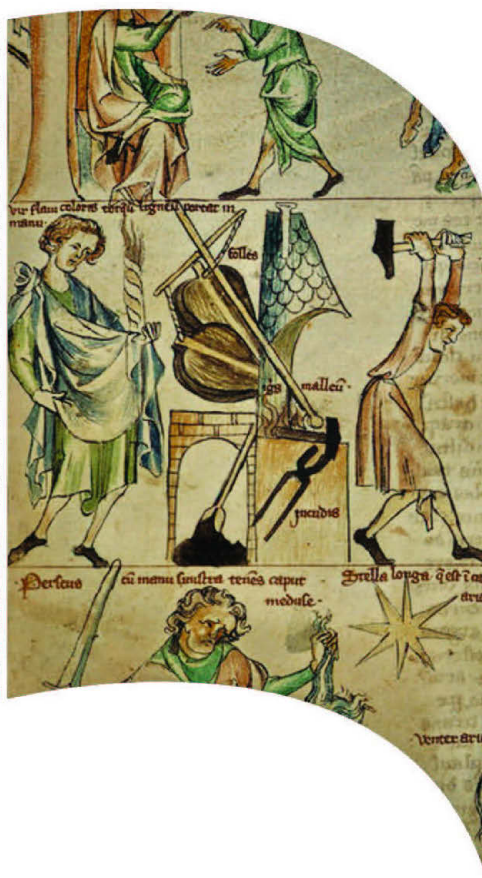 vir flavi coloris torquē ligneū portat in
manu·
folles
igꝰ malleū·
incudis
·Perseus cū manu sinistra tenēs caput
meduse·
Stella longa q̄ est ī
Venter